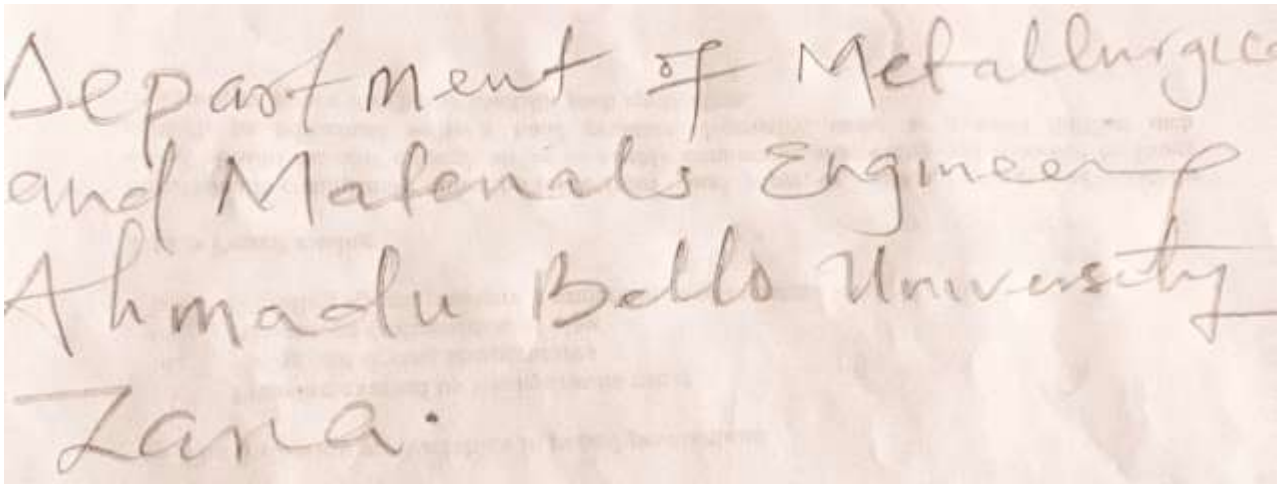 Department of Metallurgica
and Materials Engineering
Ahmadu Bello University
Zaria.